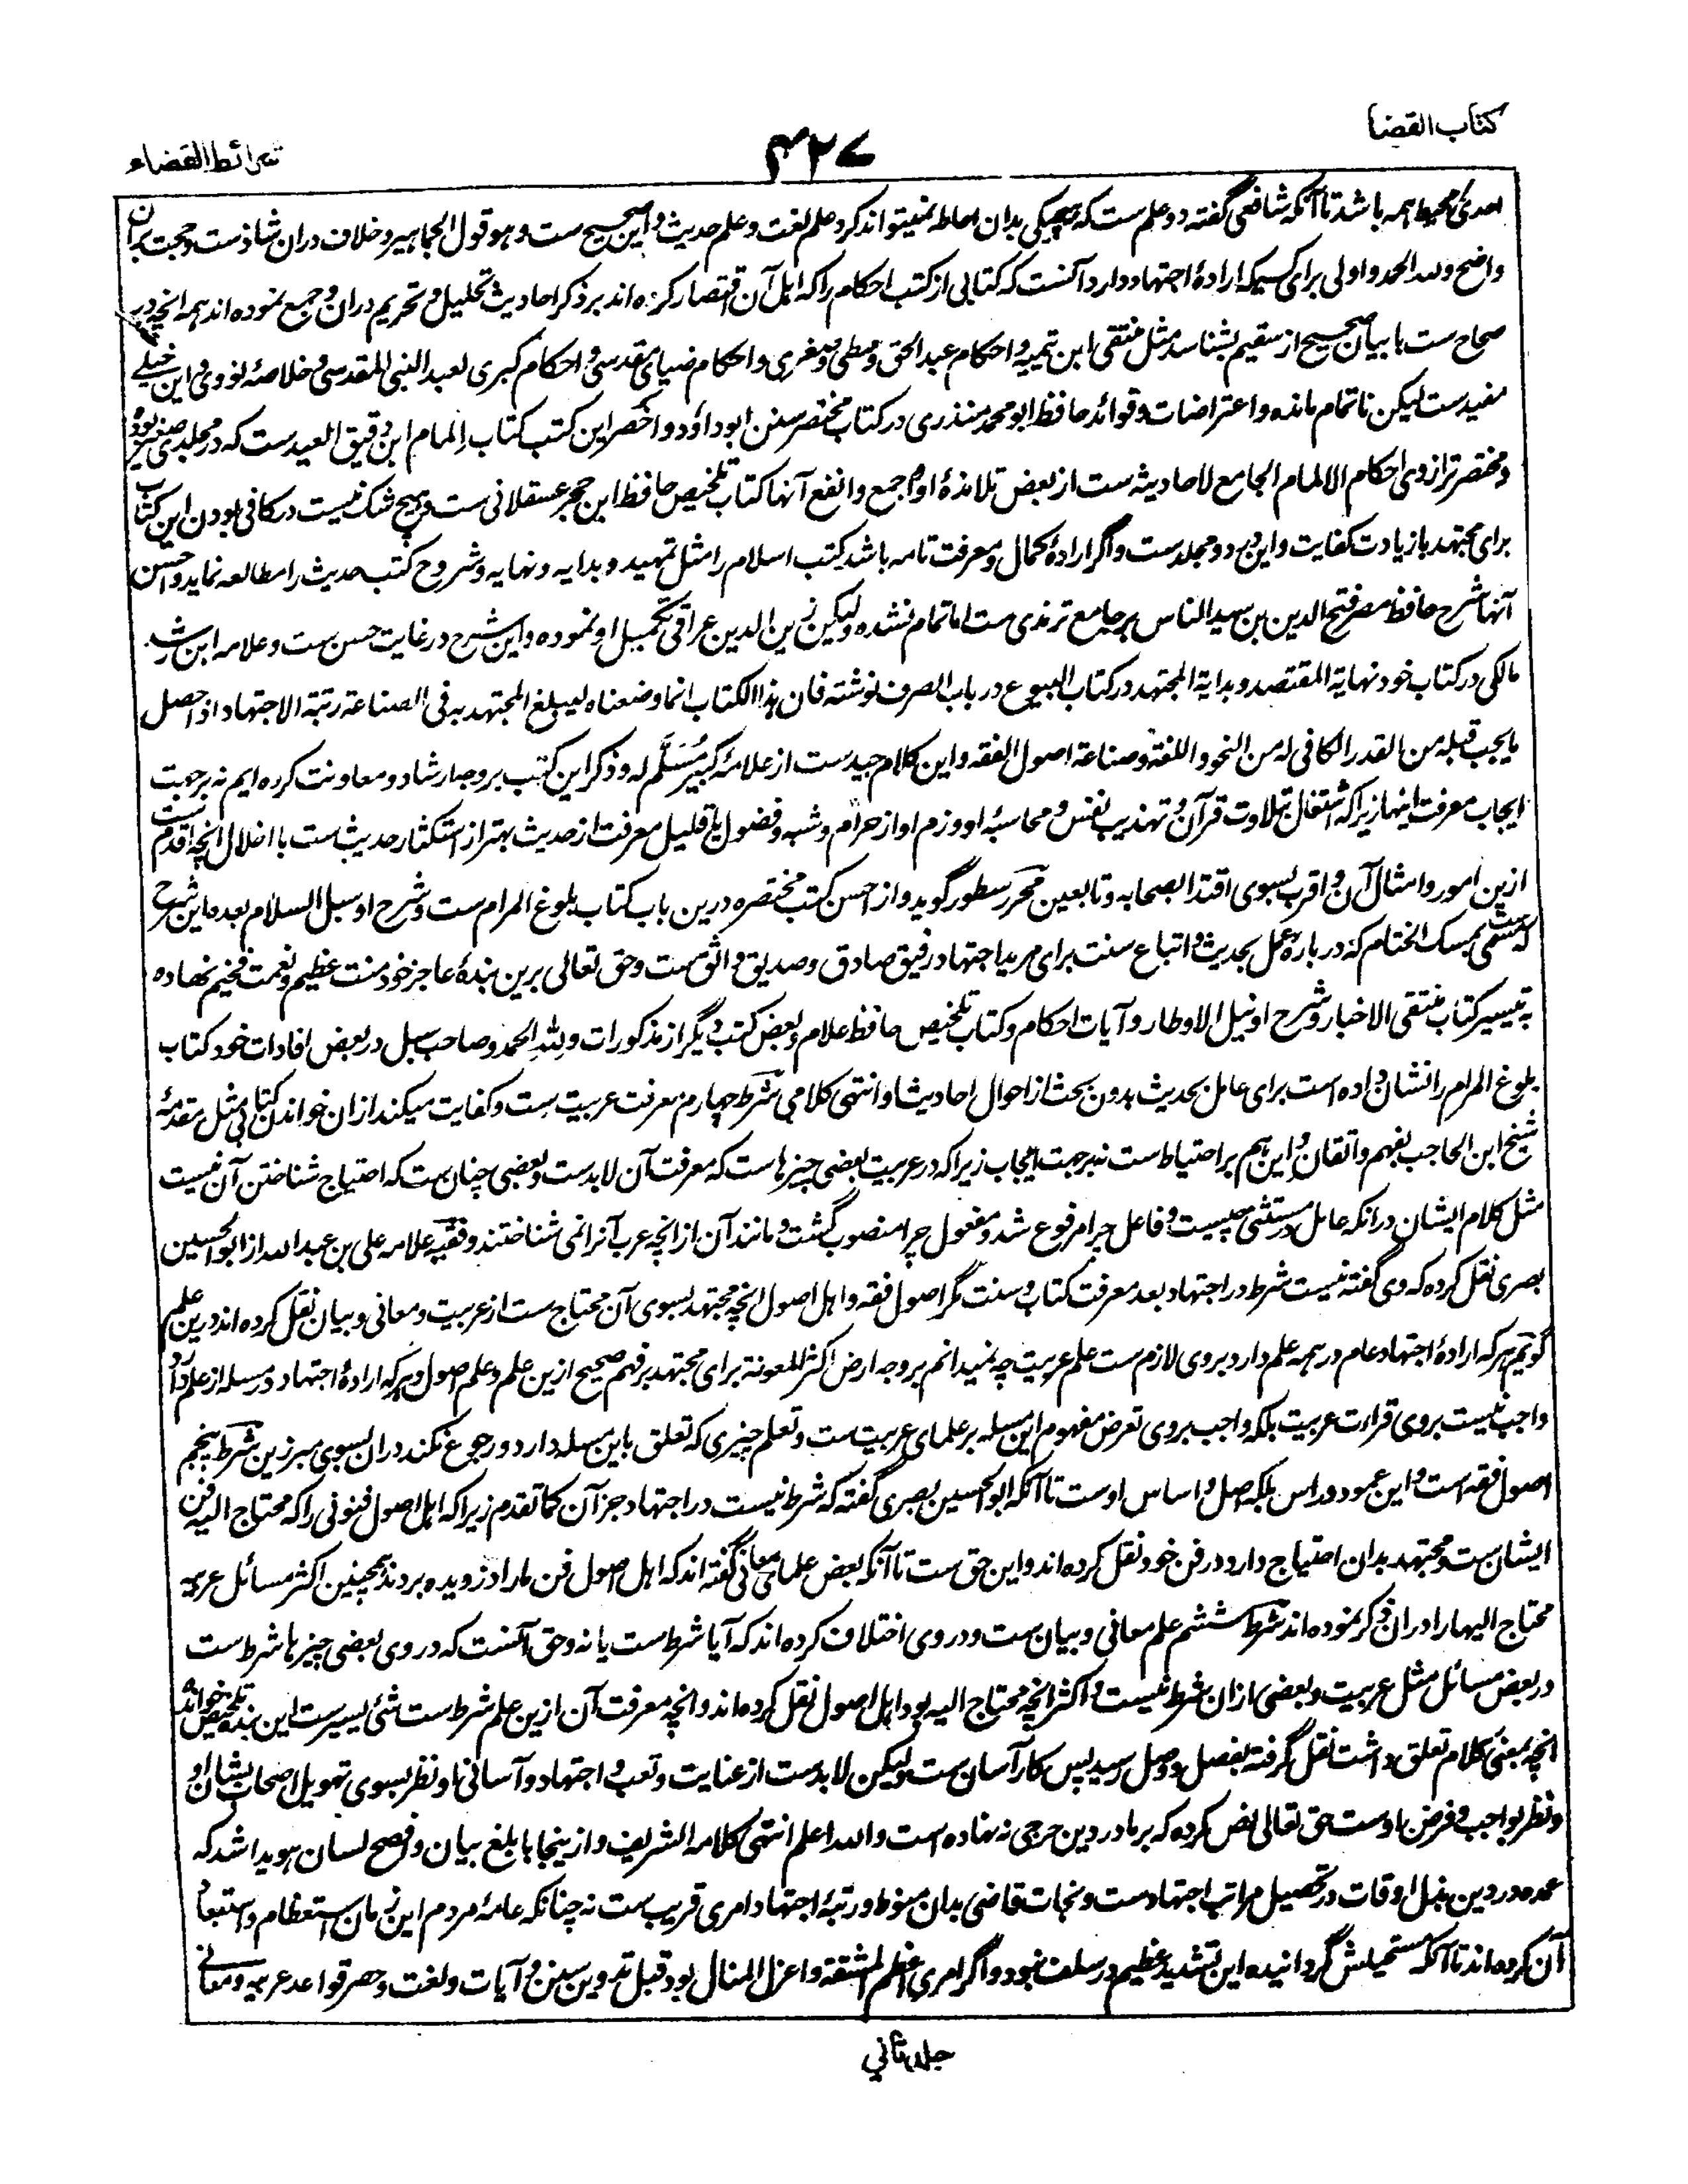 کتاب القضا
۴۲۷
شرائط القضاء
احدی محیط همه باشد تا آنکه شافعی گفته دو علم ست که هیچیکی بدان احاطه نمیتواند کرد علم لغت و علم حدیث و این صحیح ست و هو قول الجماهیر و خلاف دران شاذست و حجت بران
واضح ولله الحمد و اولی برای کسیکه ارادهٔ اجتهاد دارد آنست که کتابی از کتب احکام را که اهل آن اقتصار کرده اند بر ذکر احادیث تحلیل و تحریم دران و جمع نموده اند همه انچه در
صحاح ست با بیان صحیح از سقیم بشناسد مثل منتقی ابن تیمیه و احکام عبد الحق وسطی و صغری و احکام ضیای مقدسی و احکام کبری لعبد النبی المقدسی و خلاصهٔ نووی و این خیلے
مفیدست لیکن ناتمام مانده و اعتراضات و فوائد حافظ ابو محمد منذری در کتاب مختصر سنن ابو داؤد و اخصر این کتب کتاب المام ابن دقیق العیدست که در مجلدی صغیر بود
و مختصر تر از وی احکام الالمام الجامع لاحادیثه ست از بعض تلامذهٔ او و اجمع و انفع آنها کتاب تلخیص حافظ ابن حجر عسقلانی ست و هیچ شک نیست در کافی بودن این کتاب
برای مجتهد با زیادت کفایت و این در دو مجلدست و اگر ارادهٔ کمال و معرفت تامه باشد کتب اسلام را مثل تمهید و بدایه و نهایه و شروح کتب حدیث را مطالعه نماید و احسن
آنها شرح حافظ مصر فتح الدین بن سید الناس بر جامع ترمذی ست اما تمام نشده و لیکن زین الدین عراقی تکمیل او نموده و این شرح در غایت حسن ست و علامه ابن رشد
مالکی در کتاب خود نهایة المقتصد و بدایة المجتهد در کتاب البیوع در باب الصرف نوشته فان هذا الکتاب انما وضعناه لیبلغ المجتهد به فی الصناعة رتبة الاجتهاد اذا حصل
ما یجب قبله من القدر الکافی له من النحو و اللغة و صناعة اصول الفقه و این کلام جیدست از علامهٔ کبیر مُسَلَّم له و ذکر این کتب بر وجه ارشاد و معاونت کرده ایم نه بر جهت
ایجاب معرفت اینها زیرا که اشتغال بتلاوت قرآن و تهذیب نفس و محاسبهٔ او و زم او از حرام و شبه و فضول با قلیل معرفت از حدیث بهتر از استکثار حدیث ست با اخلال انچه اقدم ست
ازین امور و امثال آن و اقرب بسوی اقتدا بصحابه و تابعین محرر سطور گوید و از احسن کتب مختصره درین باب کتاب بلوغ المرام ست و شرح او سبل السلام بعده این شرح
که مسمی بمسک الختام ست که در باره عمل بحدیث و اتباع سنت برای مرید اجتهاد رفیق صادق و صدیق واثق ست و حق تعالی برین بندهٔ عاجز خود منت عظیم و نعمت فخیم نهاده
به تیسیر کتاب منتقی الاخبار و شرح او نیل الاوطار و آیات احکام و کتاب تلخیص حافظ علام و بعض کتب دیگر از مذکورات ولله الحمد و صاحب سبل در بعض افادات خود کتاب
بلوغ المرام را نشان داده است برای عامل بحدیث بدون بحث از احوال احادیث او انتهی کلامی شرط چهارم معرفت عربیت ست و کفایت میکند ازان خواندن کتابی مثل مقدمهٔ
شیخ ابن الحاجب بفهم و اتقان و این هم بر احتیاط ست نه بر جهت ایجاب زیرا که در عربیت بعضی چیزها ست که معرفت آن لابدست و بعضی چنان ست که احتیاج شناختن آن نیست
مثل کلام ایشان درانکه عامل در مستثنی چیست و فاعل چرا مرفوع شد و مفعول چرا منصوب گشت و مانند آن از انچه عرب آنرا نمی شناختند و فقیه علامه علی بن عبد الله از ابو الحسین
بصری نقل کرده که وی گفته نیست شرط در اجتهاد بعد معرفت کتاب و سنت مگر اصول فقه و اهل اصول انچه مجتهد بسوی آن محتاج ست از عربیت و معانی و بیان نقل کرده اند درین علم
گویم هر که ارادهٔ اجتهاد عام در همه علم دارد بروی لازم ست علم عربیت چه نمیدانم بر وجه ارض اکثر المعونة برای مجتهد بر فهم صحیح ازین علم و علم اصول و هر که ارادهٔ اجتهاد در مسله از علم دارد
واجب نیست بروی قراءت عربیت بلکه واجب بروی تعرض مفهوم این مسله بر علمای عربیت ست و تعلم چیزی که تعلق باین مسله دارد و رجوع نکند دران بسوی مبرزین شرط پنجم
اصول فقه است و این عمود و راس بلکه اصل و اساس اوست تا آنکه ابو الحسین بصری گفته که شرط نیست در اجتهاد جز آن کما تقدم زیرا که اهل اصول فنونی را که محتاج الیه فن
ایشان ست و مجتهد بدان احتیاج دارد در فن خود نقل کرده اند و این حق ست تا آنکه بعض علمای معانی گفته اند که اهل اصول فن ما را دزدیده بردند همچنین اکثر مسائل عربیه
محتاج الیها را دران ذکر نموده اند شرط ششم علم معانی و بیان ست و در وی اختلاف کرده اند که آیا شرط ست یا نه و حق آنست که در وی بعضی چیزها شرط ست
در بعض مسائل مثل عربیت و بعضی ازان شرط نیست و اکثر انچه محتاج الیه بود اهل اصول نقل کرده اند و انچه معرفت آن ازین علم شرط ست شئ یسیرست این بنده تلخیص خوانده
انچه بمعنی کلام تعلق داشت نقل گرفته بفصل و وصل رسید پس کار آسان ست و لیکن لابدست از عنایت و تعب و اجتهاد و آسانی او نظر بسوی تهویل اصحاب بشان او
و نظر بواجب و فرض اوست حق تعالی نص کرده که بر ما در دین حرجی نه نهاده است والله اعلم انتهی کلامه الشریف و ازینجا بابلغ بیان و افصح لسان هویدا شد که
عمده در دین بذل اوقات در تحصیل مراتب اجتهادست و نجات قاضی بدان منوط و رتبهٔ اجتهاد امری قریب ست نه چنانکه عامهٔ مردم این زمان استعظام و استبعاد
آن کرده اند تا آنکه مستحیلش گردانیده این تشدید عظیم در سلف نبود و اگر امری اعظم المشقة و اعزل المنال بود قبل تدوین سنن و آیات و لغت و حصر قواعد عربیه و معانی
جلد ثانی